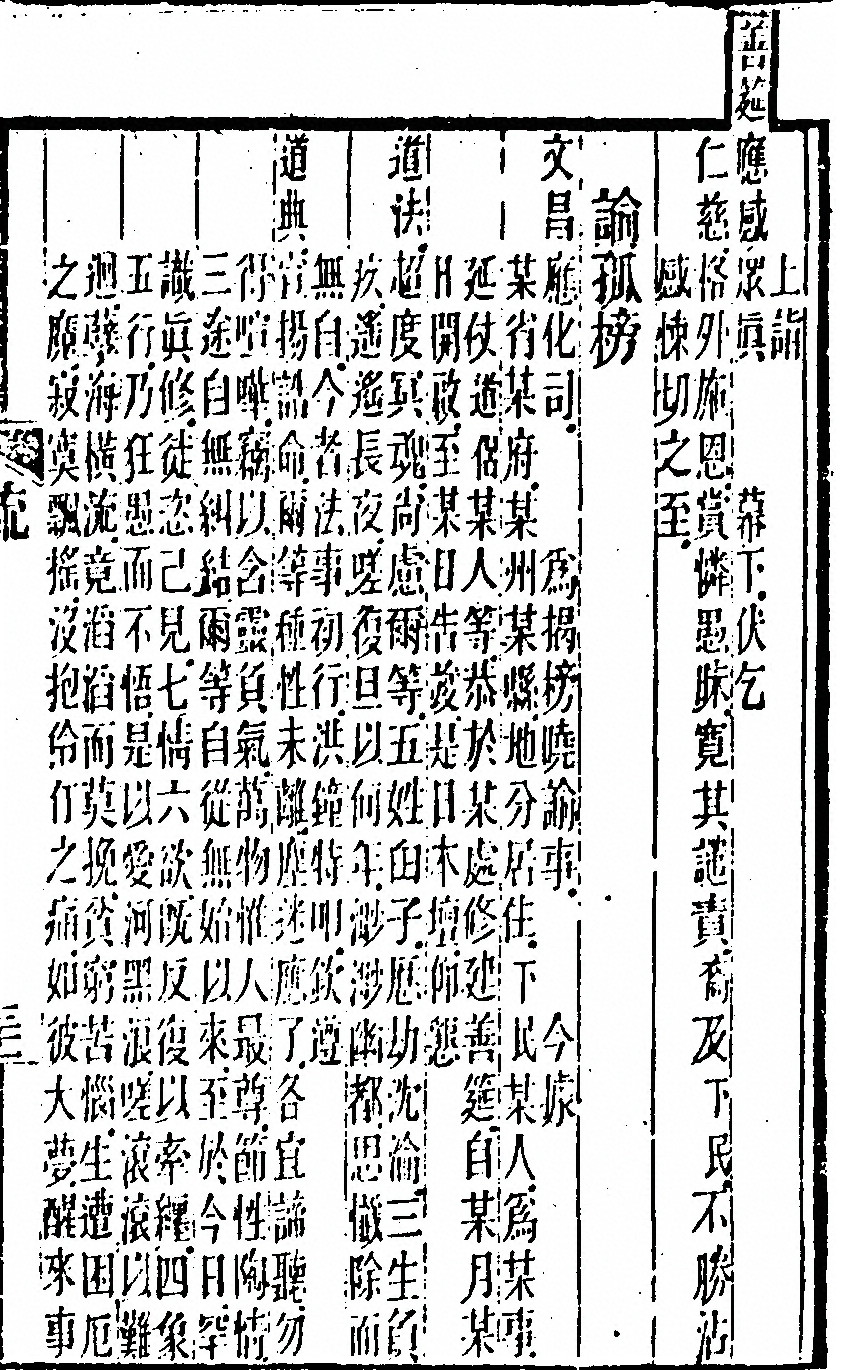 上詣
善筵應感眾真　幕下伏乞
仁慈格外施恩賞憐愚昧寬其譴責裔及下民不勝沾
感悚切之至
諭孤榜
文昌應化司　為揭榜曉諭事　今據
某省某府某州某縣地分居住下民某人為某事
延仗道侶某人等恭於某處修建善筵自某月某
日開啟至某日告竣是日本壇仰懇
道法超度冥魂尚慮爾等五姓由子尫幼沈淪三生負
疚遙遙長夜嗟復旦以何年渺渺幽都思懺除而
無自今者法事初行洪鐘特叩欽遵
道典宣揚誥命爾等種性未離塵迷應了各宜諦聽勿
得喧嘩竊以含靈負氣萬物惟人最尊節性陶情
三途自無糾結爾等自從無始以來至於今日罕
識真修徒恣己見七情六欲既反復以牽纏四象
五行乃狂愚而不悟是以愛河黑浪嗟滾滾以難
迴孽海橫流竟滔滔而莫挽貧窮苦惱生遭困厄
之磨寂寞飄搖沒抱伶仃之痛如彼大夢醒來事